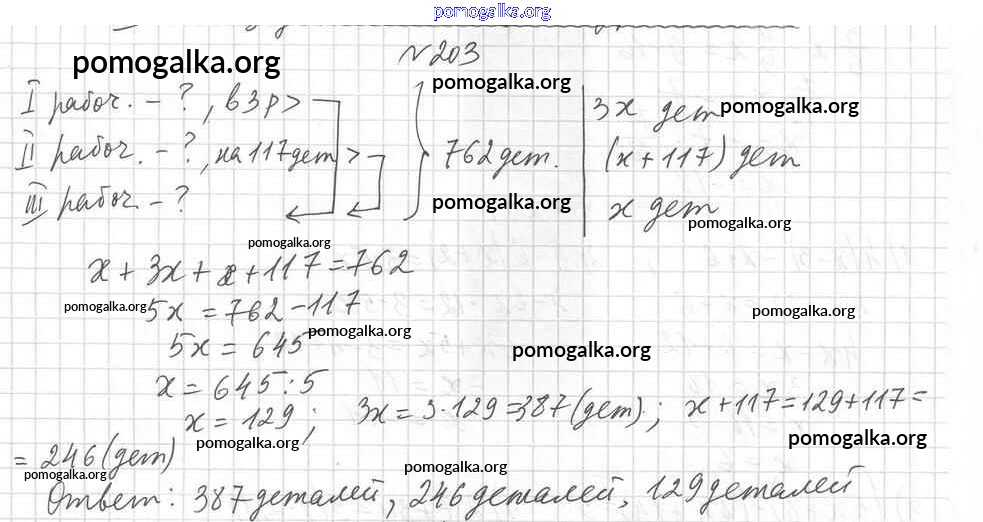 pomogalka.org
№203
pomogalka.org
I рабоч. – ?, в 3 р > pomogalka.org 3x дет pomogalka.org
II рабоч. – ?, на 117 дет > 762 дет. (x + 117) дет
III рабоч. – ? pomogalka.org x дет
pomogalka.org
pomogalka.org
x + 3x + x + 117 = 762
pomogalka.org 5x = 762 – 117 pomogalka.org
pomogalka.org
5x = 645 pomogalka.org
x = 645 : 5
x = 129 ; 3x = 3 · 129 = 387 (дет) ; x + 117 = 129 + 117 =
pomogalka.org pomogalka.org
= 246 (дет)
pomogalka.org pomogalka.org
Ответ: 387 деталей, 246 деталей, 129 деталей